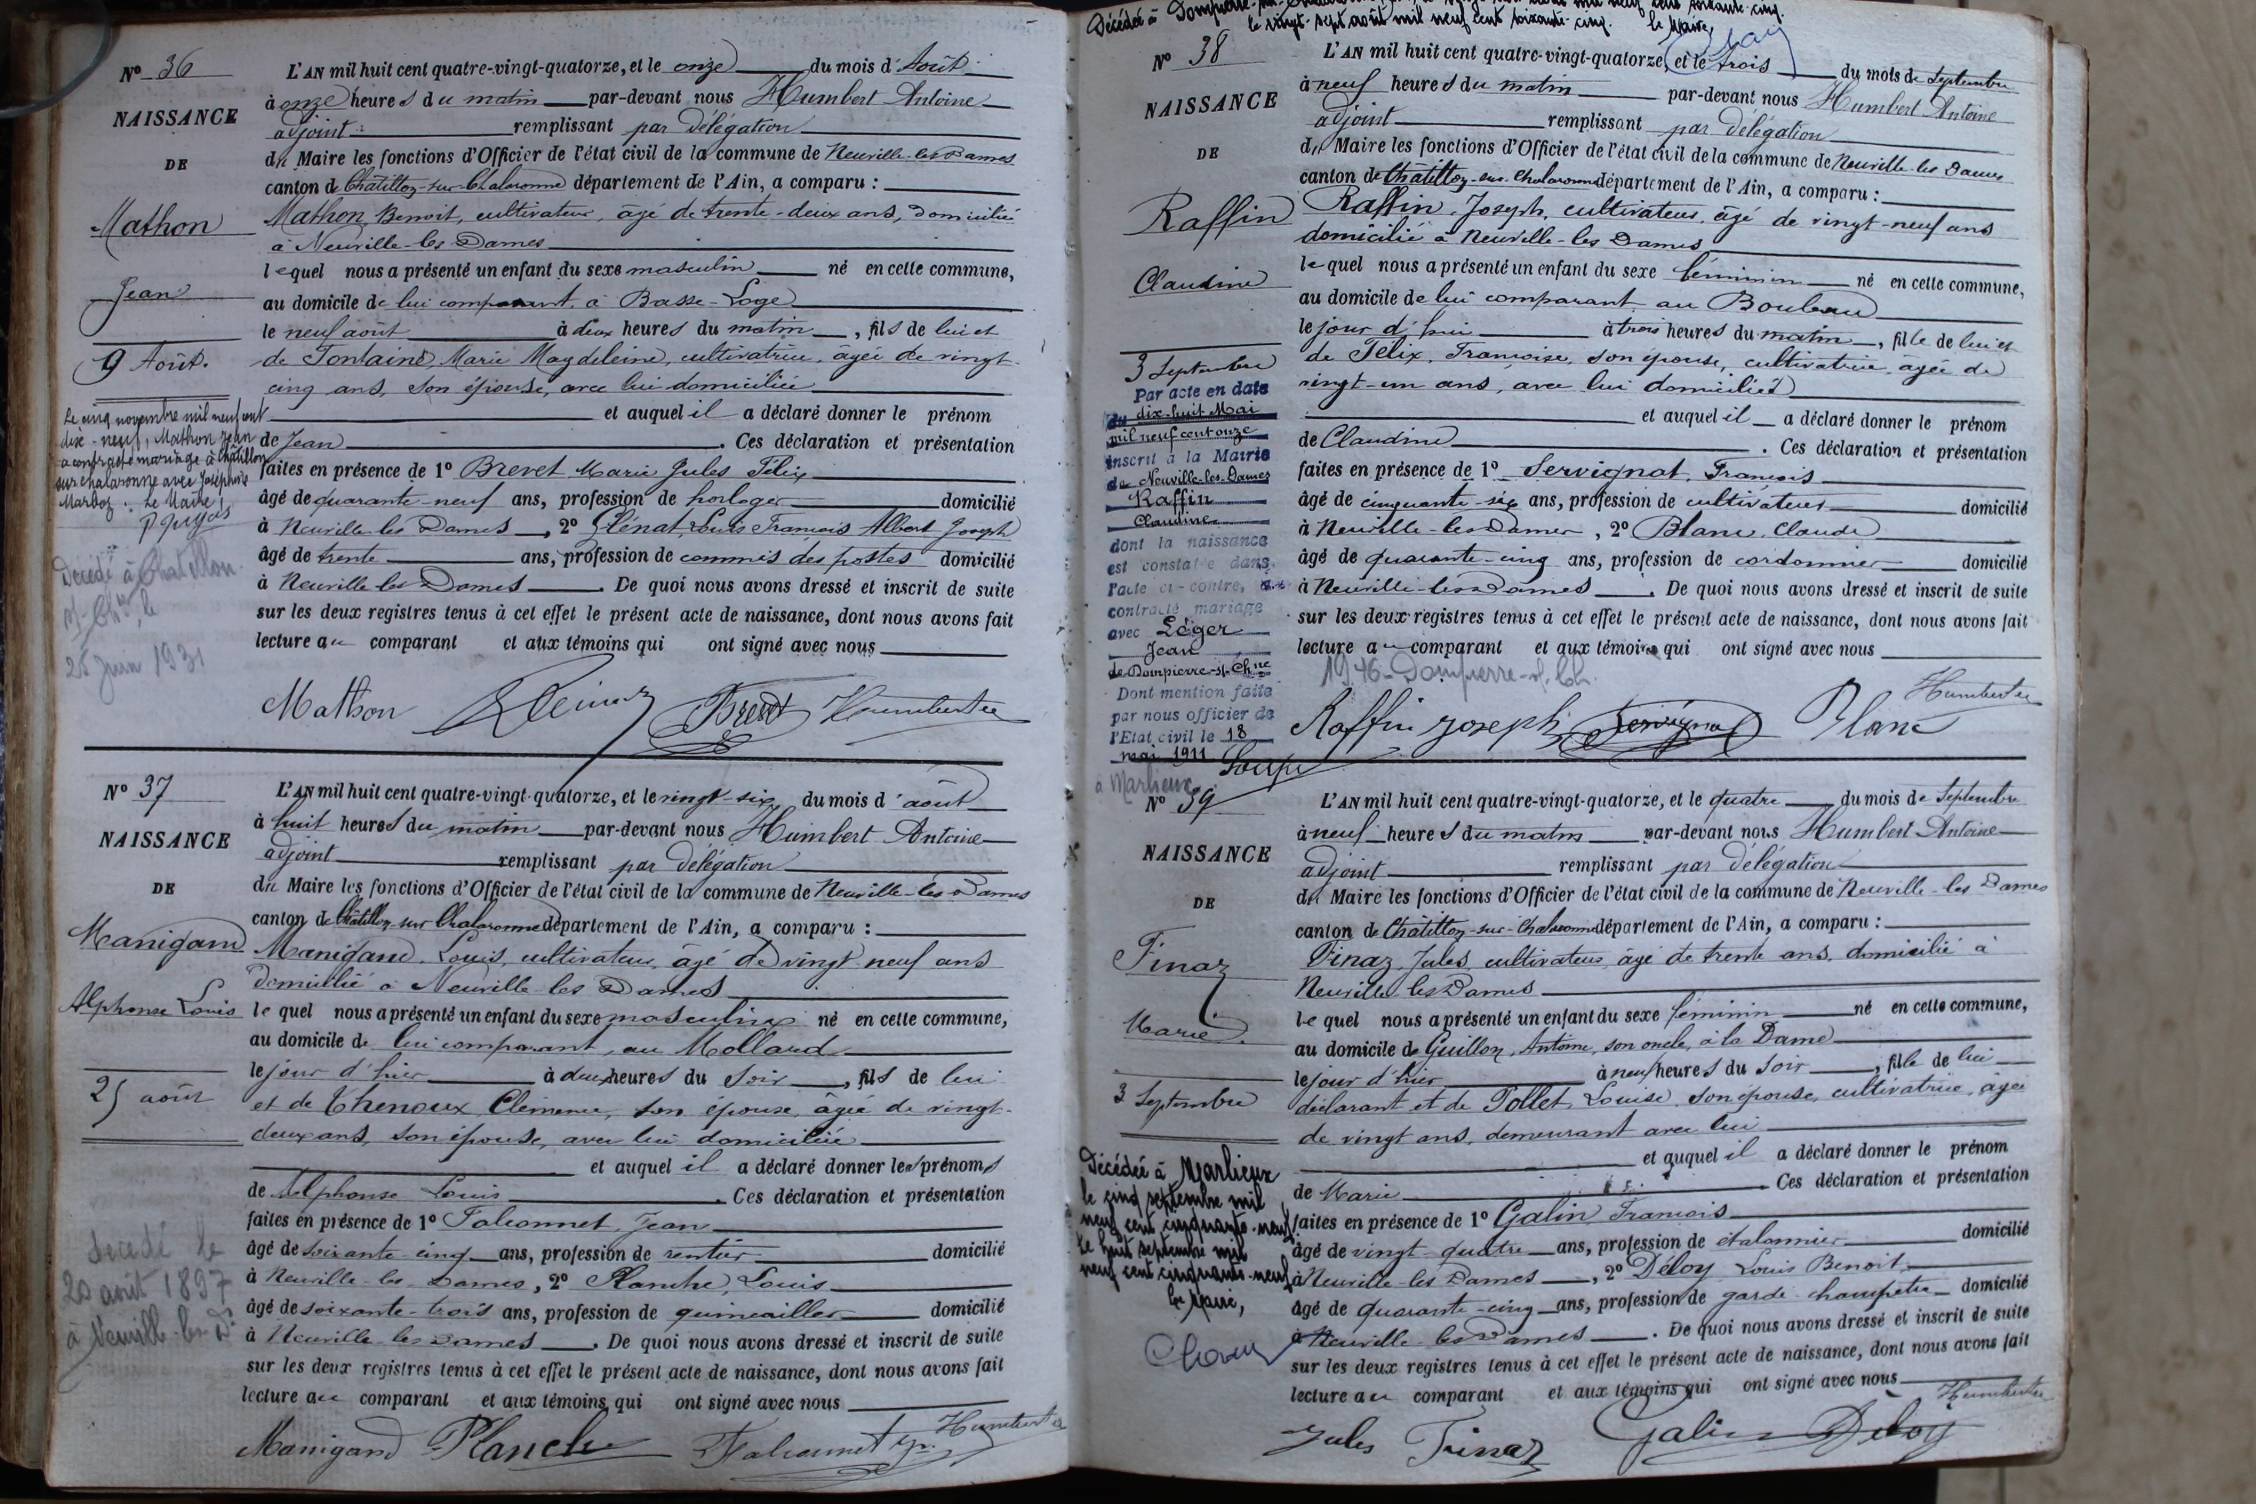 Nº 36
NAISSANCE
DE
Mathon
Jean
9 Août.
Le cinq novembre mil neuf cent
dix-neuf, Mathon Jean
a contracté mariage à Châtillon
sur Chalaronne avec Joséphine
Marboz. Le Maire,
Décédé à Chatillon
s/-Chne, le
25 Juin 1931
L'AN mil huit cent quatre-vingt-quatorze, et le onze du mois d'Août
à onze heures du matin par-devant nous Humbert Antoine
adjoint remplissant par délégation
du Maire les fonctions d'Officier de l'état civil de la commune de Neuville-les-Dames
canton de Châtillon-sur-Chalaronne département de l'Ain, a comparu :
Mathon, Benoit, cultivateur, âgé de trente-deux ans, domicilié
à Neuville-les-Dames
lequel nous a présenté un enfant du sexe masculin né en cette commune,
au domicile de lui comparant, à Basse-Loge
le neuf août à deux heures du matin, fils de lui et
de Fontaine, Marie Magdeleine, cultivatrice, âgée de vingt-
cinq ans, son épouse, avec lui domiciliée
et auquel il a déclaré donner le prénom
de Jean. Ces déclaration et présentation
faites en présence de 1º Brevet Marie Jules Félix
âgé de quarante-neuf ans, profession de horloger domicilié
à Neuville les Dames, 2º Glénat, Louis François Albert Joseph
âgé de trente ans, profession de commis des postes domicilié
à Neuville-les-Dames. De quoi nous avons dressé et inscrit de suite
sur les deux registres tenus à cet effet le présent acte de naissance, dont nous avons fait
lecture au comparant et aux témoins qui ont signé avec nous
Mathon Brevet Humbert
Nº 37
NAISSANCE
DE
Manigand
Alphonse Louis
25 août
Décédé le
20 août 1897
à Neuville-les-Ds
L'AN mil huit cent quatre-vingt-quatorze, et le vingt-six du mois d'août
à huit heures du matin par-devant nous Humbert Antoine
adjoint remplissant par délégation
du Maire les fonctions d'Officier de l'état civil de la commune de Neuville-les-Dames
canton de Châtillon-sur-Chalaronne département de l'Ain, a comparu :
Manigand, Louis, cultivateur, âgé de vingt-neuf ans
domicilié à Neuville les Dames
lequel nous a présenté un enfant du sexe masculin né en cette commune,
au domicile de lui comparant, au Mollard
le jour d'hier à deux heures du soir, fils de lui
et de Thenoux Clémence, son épouse, âgée de vingt-
deux ans, son épouse, avec lui domiciliée
et auquel il a déclaré donner les prénoms
de Alphonse Louis. Ces déclaration et présentation
faites en présence de 1º Falconnet, Jean
âgé de soixante-cinq ans, profession de rentier domicilié
à Neuville-les-Dames, 2º Planche, Louis
âgé de soixante-trois ans, profession de quincailler domicilié
à Neuville-les-Dames. De quoi nous avons dressé et inscrit de suite
sur les deux registres tenus à cet effet le présent acte de naissance, dont nous avons fait
lecture au comparant et aux témoins qui ont signé avec nous
Manigand Planche Falconnet Humbert
Décédée à Dompierre-sur-Chalaronne
le vingt-sept août mil neuf cent soixante-cinq. Le Maire,
Nº 38
NAISSANCE
DE
Raffin
Claudine
3 Septembre
Par acte en date
du dix-huit Mai
mil neuf cent onze
inscrit à la Mairie
de Neuville-les-Dames
Raffin
Claudine
dont la naissance
est constatée dans
l'acte ci-contre, a
contracté mariage
avec Léger
Jean
de Dompierre-s/-Chne
Dont mention faite
par nous officier de
l'Etat civil le 18
mai 1911
L'AN mil huit cent quatre-vingt-quatorze, et le trois du mois de Septembre
à neuf heures du matin par-devant nous Humbert Antoine
adjoint remplissant par délégation
du Maire les fonctions d'Officier de l'état civil de la commune de Neuville-les-Dames
canton de Châtillon-sur-Chalaronne département de l'Ain, a comparu :
Raffin, Joseph, cultivateur, âgé de vingt-neuf ans
domicilié à Neuville-les-Dames
lequel nous a présenté un enfant du sexe féminin né en cette commune,
au domicile de lui comparant au Bouleau
le jour d'hui à trois heures du matin, fille de lui et
de Félix, Françoise, son épouse, cultivatrice, âgée de
vingt-un ans, avec lui domiciliée
et auquel il a déclaré donner le prénom
de Claudine. Ces déclaration et présentation
faites en présence de 1º Servignat, François
âgé de cinquante-six ans, profession de cultivateur domicilié
à Neuville-les-Dames, 2º Blanc, Claude
âgé de quarante-cinq ans, profession de cordonnier domicilié
à Neuville-les-Dames. De quoi nous avons dressé et inscrit de suite
sur les deux registres tenus à cet effet le présent acte de naissance, dont nous avons fait
lecture au comparant et aux témoins qui ont signé avec nous
1946-Dompierre-s/-Ch.
Raffin Joseph Servignat Blanc Humbert
à Marlieux
Nº 39
NAISSANCE
DE
Finaz
Marie
3 Septembre
Décédée à Marlieux
le cinq septembre mil
neuf cent cinquante-neuf
Le huit septembre mil
neuf cent cinquante-neuf
Le Maire,
L'AN mil huit cent quatre-vingt-quatorze, et le quatre du mois de Septembre
à neuf heures du matin par-devant nous Humbert Antoine
adjoint remplissant par délégation
du Maire les fonctions d'Officier de l'état civil de la commune de Neuville-les-Dames
canton de Châtillon-sur-Chalaronne département de l'Ain, a comparu :
Finaz, Jules, cultivateur, âgé de trente ans, domicilié à
Neuville les Dames
lequel nous a présenté un enfant du sexe féminin né en cette commune,
au domicile de Guillon, Antoine, son oncle, à la Dame
le jour d'hier à neuf heures du soir, fille de lui
déclarant et de Pollet, Louise, son épouse, cultivatrice, âgée
de vingt ans, demeurant avec lui
et auquel il a déclaré donner le prénom
de Marie. Ces déclaration et présentation
faites en présence de 1º Galin, François
âgé de vingt-quatre ans, profession de étalonnier domicilié
à Neuville-les-Dames, 2º Déloy, Louis Benoit,
âgé de quarante-cinq ans, profession de garde-champêtre domicilié
à Neuville-les-Dames. De quoi nous avons dressé et inscrit de suite
sur les deux registres tenus à cet effet le présent acte de naissance, dont nous avons fait
lecture au comparant et aux témoins qui ont signé avec nous
Jules Finaz Galin Déloy Humbert